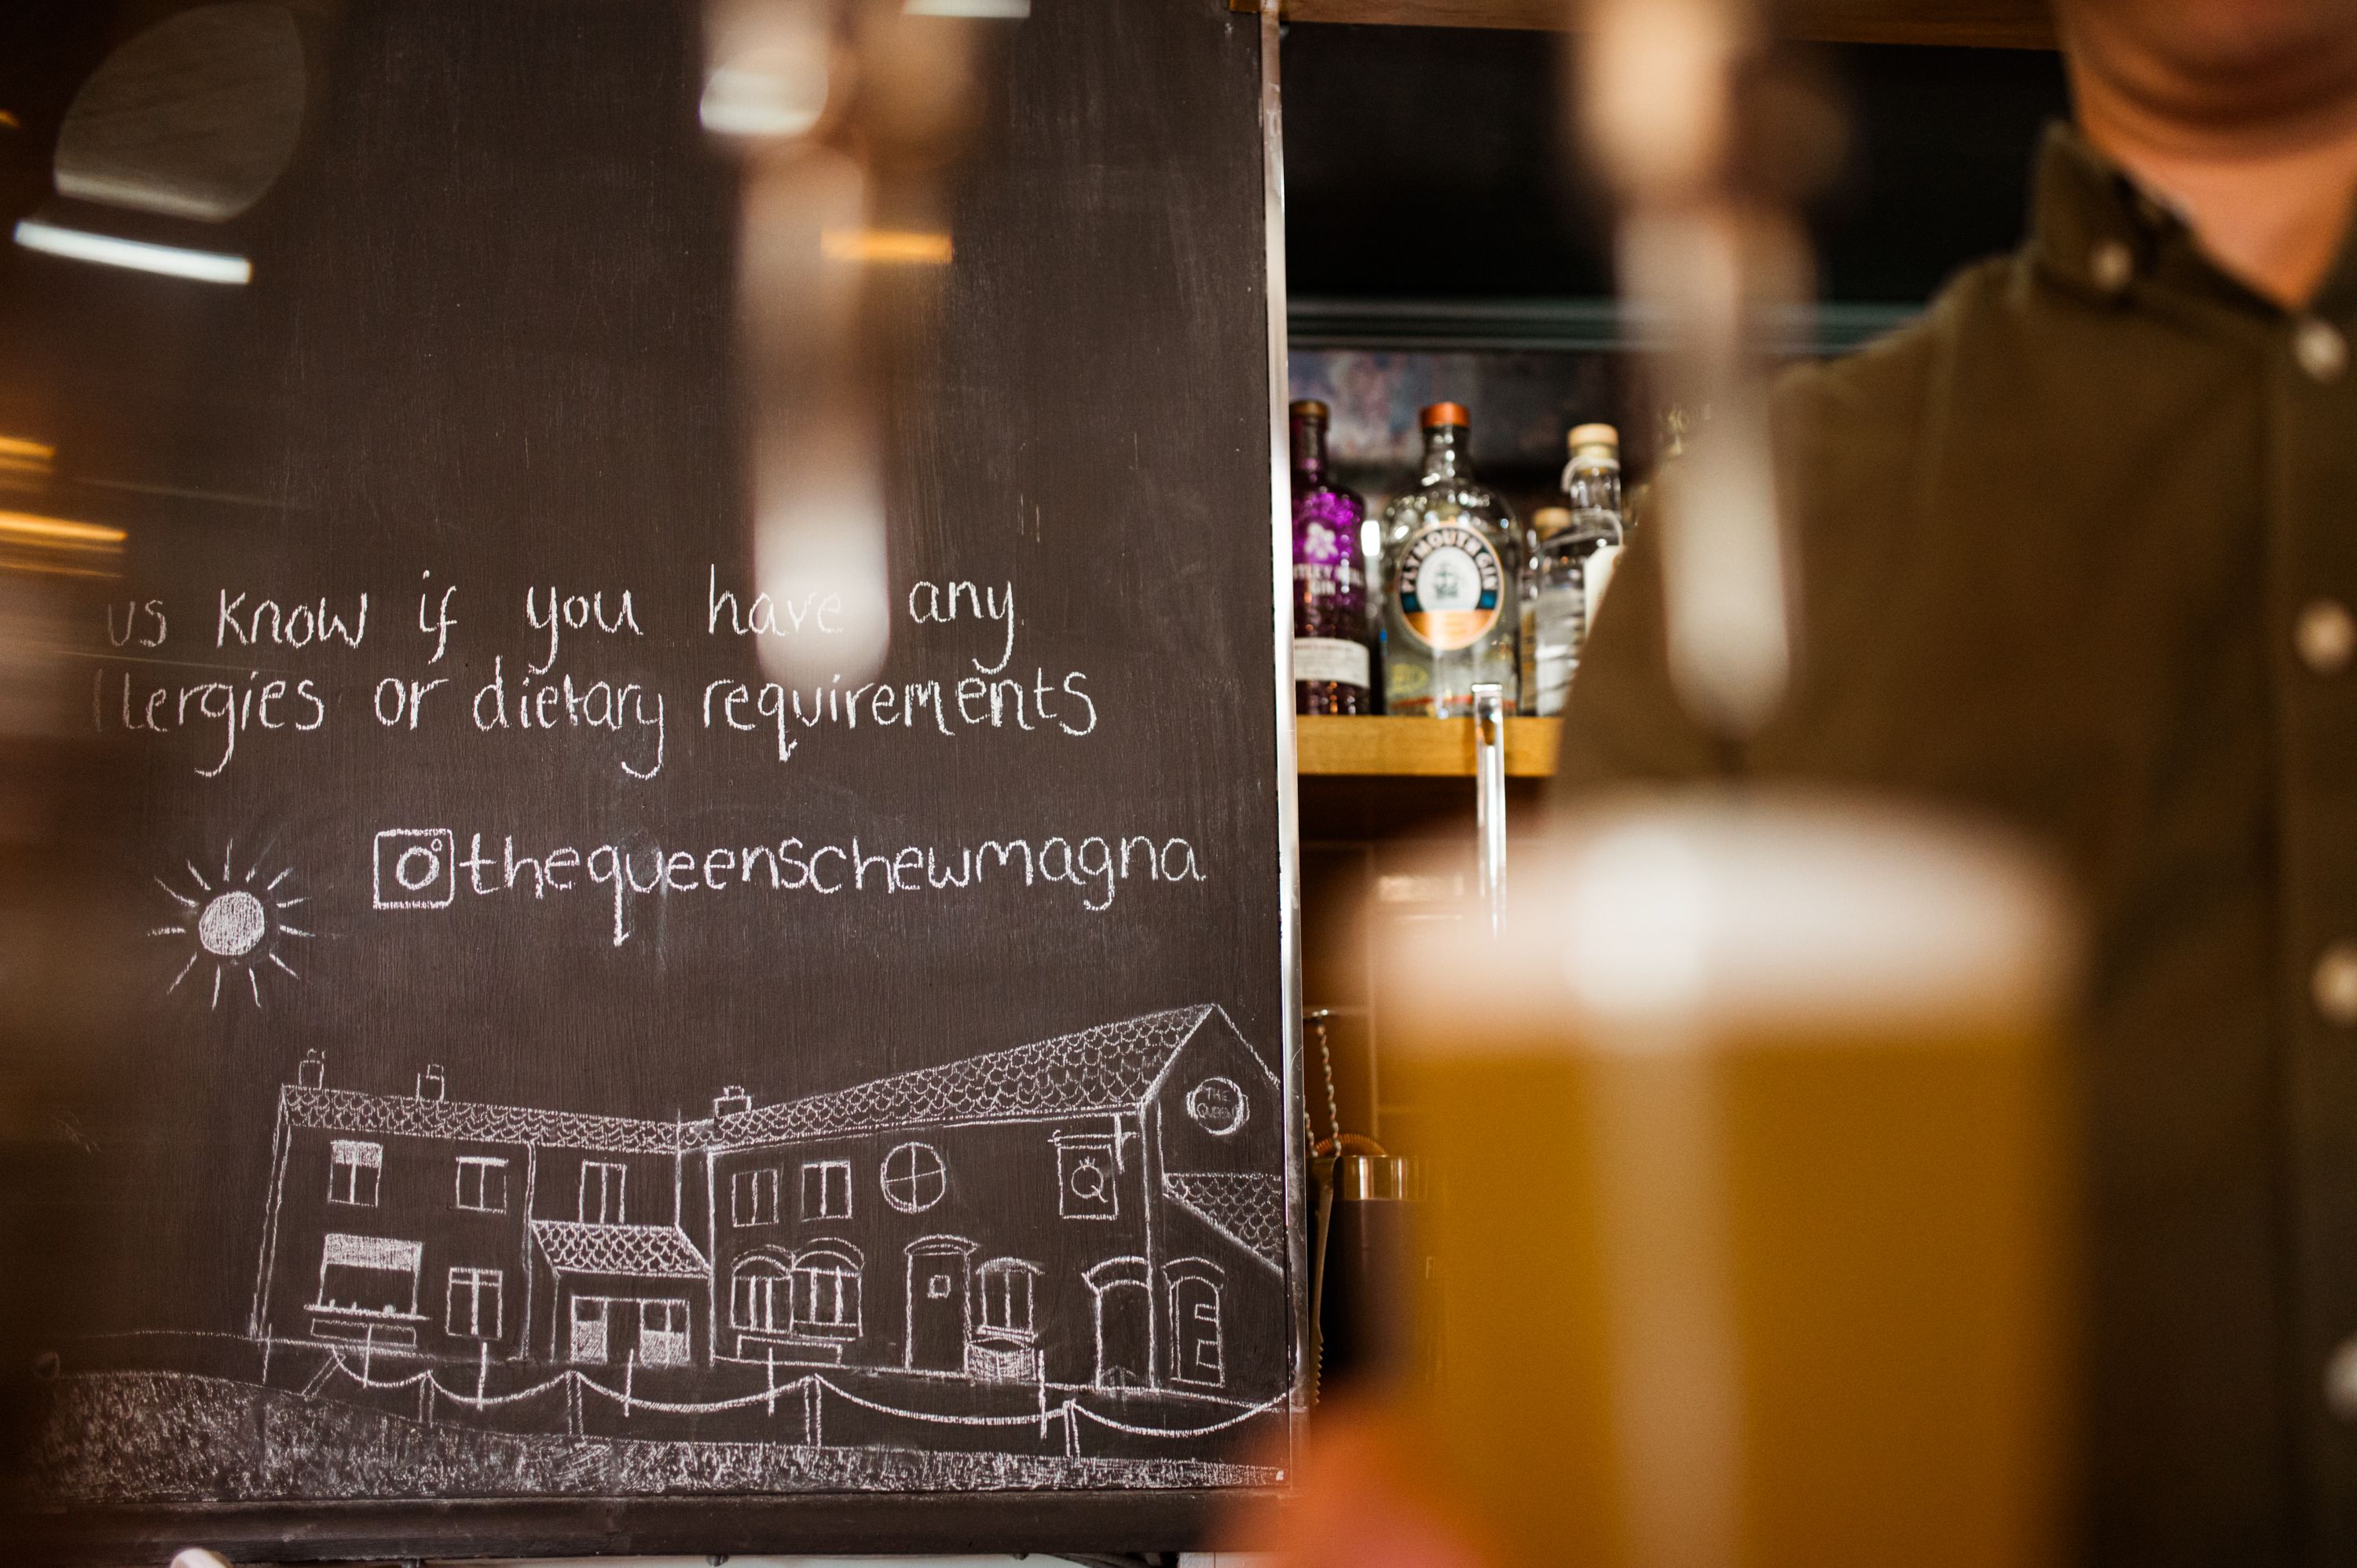 us know if you have any
llergies or dietary requirements
thequeenschewmagna
THE
QUEEN
Q
PLYMOUTH GIN
GIN